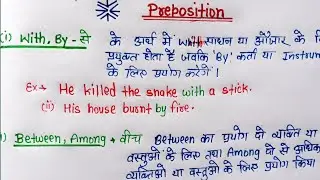 Preposition
(i) With, By - से के अर्थ में With साधन या औजार के लि
प्रयुक्त होता है जबकि 'By' कर्ता या Instrum
के लिए प्रयोग करेगें।
Ex- He killed the snake with a stick.
(ii) His house burnt by fire.
) Between, Among + बीच Between का प्रयोग दो व्यक्ति या
वस्तुओं के लिए तथा Among दो से अधिक
व्यक्तिओं या वस्तुओं के लिए प्रयोग किया